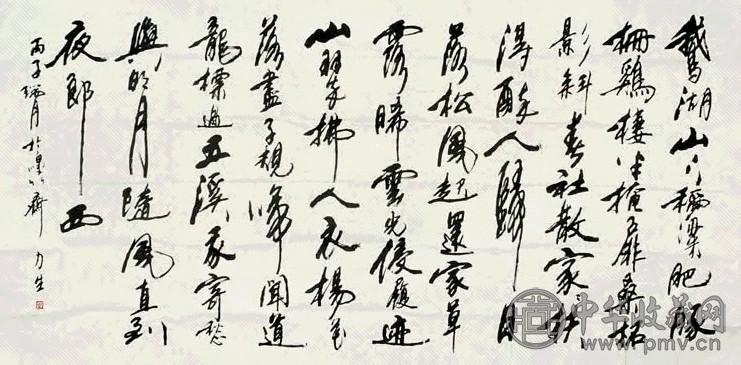 鵝湖山下稻粱肥豚
柵鷄棲半掩扉桑柘
影斜春社散家〻扶
得醉人歸日
落松風起還家草
露晞雲光侵履迹
山翠拂人衣楊花
落盡子規啼聞道
龍標過五溪我寄愁
與明月隨風直到
夜郎西
丙子 月於 齋力生
中华收藏网
www.pmv.cn